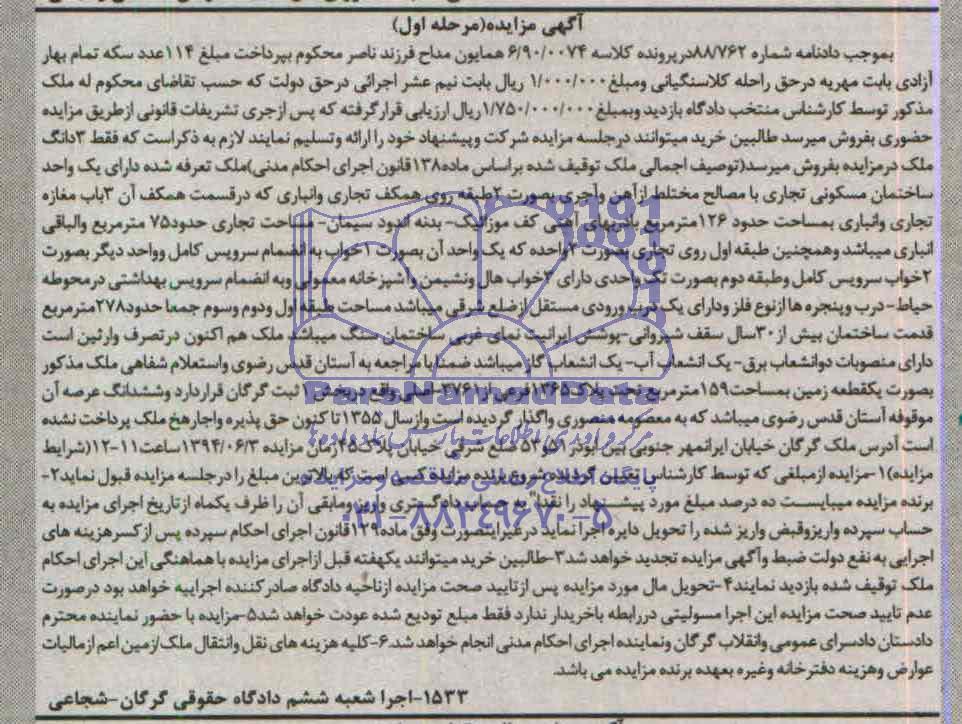 آگهی مزایده(مرحله اول)
بموجب دادنامه شماره ۸۸/۷۶۲درپرونده کلاسه ۶/۹۰/۰۰۷۴ همایون مداح فرزند ناصر محکوم بپرداخت مبلغ ۱۱۴عدد سکه تمام بهار
آزادی بابت مهریه درحق راحله کلاسنگیانی ومبلغ۱/۰۰۰/۰۰۰ ریال بابت نیم عشر اجرائی درحق دولت که حسب تقاضای محکوم له ملک
مذکور توسط کارشناس منتخب دادگاه بازدید وبمبلغ۱/۷۵۰/۰۰۰/۰۰۰ریال ارزیابی قرارگرفته که پس ازجری تشریفات قانونی ازطریق مزایده
حضوری بفروش میرسد طالبین خرید میتوانند درجلسه مزایده شرکت وپیشنهاد خود را ارائه وتسلیم نمایند لازم به ذکراست که فقط ۳دانگ
ملک درمزایده بفروش میرسد(توصیف اجمالی ملک توقیف شده براساس ماده۱۳۸قانون اجرای احکام مدنی)ملک تعرفه شده دارای یک واحد
ساختمان مسکونی تجاری با مصالح مختلط ازآهن وآجری بصورت ۲طبقه روی همکف تجاری وانباری که درقسمت همکف آن ۳باب مغازه
تجاری وانباری بمساحت حدود ۱۲۶مترمربع بادربهای آهنی کف موزائیک- بدنه اندود سیمان- مساحت تجاری حدود۷۵ مترمربع والباقی
انباری میباشد وهمچنین طبقه اول روی تجاری بصورت ۲واحده که یک واحد آن بصورت ۱خواب به انضمام سرویس کامل وواحد دیگر بصورت
۲خواب سرویس کامل وطبقه دوم بصورت تک واحدی دارای ۲خواب هال ونشیمن وآشپزخانه معمولی وبه انضمام سرویس بهداشتی درمحوطه
حیاط- درب وپنجره ها ازنوع فلز ودارای یک درب ورودی مستقل ازضلع شرقی میباشد مساحت طبقه اول ودوم وسوم جمعا حدود۲۷۸مترمربع
قدمت ساختمان بیش از۳۰سال سقف شیروانی-پوشش ایرانیت نمای غربی ساختمان سنگ میباشد ملک هم اکنون درتصرف وارثین است
دارای منصوبات دوانشعاب برق- یک انشعاب آب- یک انشعاب گازمیباشد ضمنا با مراجعه به آستان قدس رضوی واستعلام شفاهی ملک مذکور
بصورت یکقطعه زمین بمساحت۱۵۹مترمربع تحت پلاک۱۳۶۵فرعی از۳۷۶۱-اصلی واقع دربخش۱ ثبت گرگان قراردارد وششدانگ عرصه آن
موقوفه آستان قدس رضوی میباشد که به معصومه منصوری واگذار گردیده است وازسال ۱۳۵۵تا کنون حق پذیره واجارهخ ملک پرداخت نشده
است آدرس ملک گرگان خیابان ایرانمهر جنوبی بین ابوذر۵۱و۵۳ ضلع شرقی خیابان پلاک۴۵زمان مزایده ۱۳۹۴/۰۶/۳ساعت۱۱-۱۲(شرایط
مزایده)۱-مزایده ازمبلغی که توسط کارشناس تعیین گردیده شروع برنده مزایده کسی است که بالاترین مبلغ را درجلسه مزایده قبول نماید۲-
برنده مزایده میبایست ده درصد مبلغ مورد پیشنهاد را نقداً به حساب دادگستری واریز ومابقی آن را ظرف یکماه ازتاریخ اجرای مزایده به
حساب سپرده واریزوقبض واریز شده را تحویل دایره اجرا نماید درغیراینصورت وفق ماده۱۲۹قانون اجرای احکام سپرده پس ازکسرهزینه های
اجرایی به نفع دولت ضبط وآگهی مزایده تجدید خواهد شد۳-طالبین خرید میتوانند یکهفته قبل ازاجرای مزایده با هماهنگی این اجرای احکام
ملک توقیف شده بازدید نمایند۴-تحویل مال مورد مزایده پس ازتایید صحت مزایده ازناحیه دادگاه صادرکننده اجراییه خواهد بود درصورت
عدم تایید صحت مزایده این اجرا مسولیتی دررابطه باخریدار ندارد فقط مبلغ تودیع شده عودت خواهد شد۵-مزایده با حضور نماینده محترم
دادستان دادسرای عمومی وانقلاب گرگان ونماینده اجرای احکام مدنی انجام خواهدشد.۶-کلیه هزینه های نقل وانتقال ملک/زمین اعم ازمالیات
عوارض وهزینه دفترخانه وغیره بعهده برنده مزایده می باشد.
۱۵۳۳-اجرا شعبه ششم دادگاه حقوقی گرگان-شجاعی
ParsNamadData
پایگاه اطلاع رسانی مناقصه و مزایده
۰۲۱-۸۸۳۴۹۶۷۰-۵